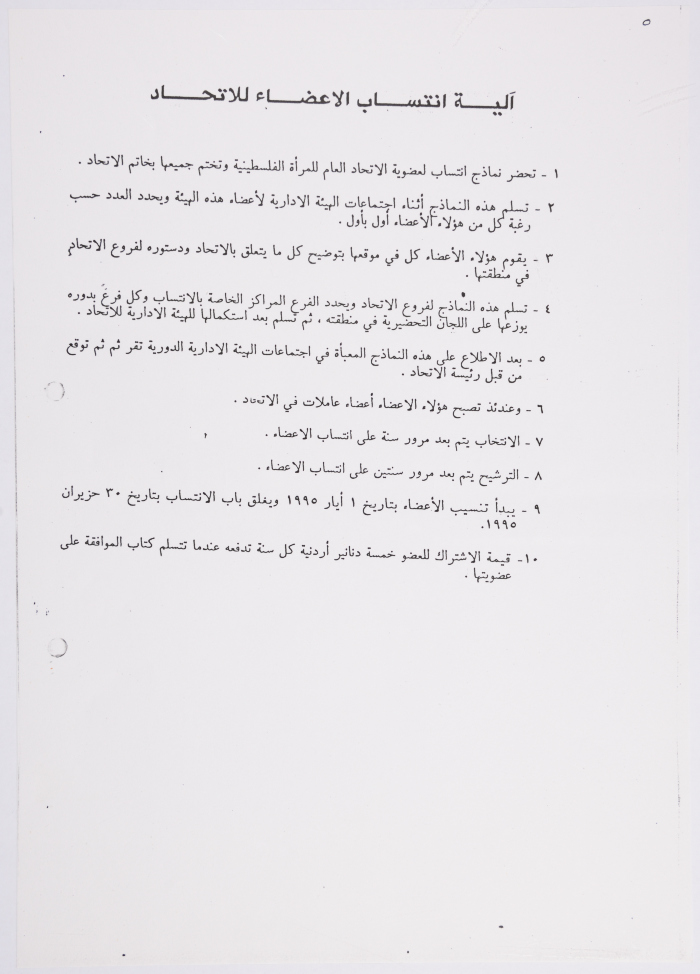 ٥
آليـــة انتســـاب الاعضـــاء للاتحـــاد
١ - تحضر نماذج انتساب لعضوية الاتحاد العام للمرأة الفلسطينية وتختم جميعها بخاتم الاتحاد .
٢ - تسلم هذه النماذج أثناء اجتماعات الهيئة الادارية لأعضاء هذه الهيئة ويحدد العدد حسب
رغبة كل من هؤلاء الأعضاء أول بأول .
٣ - يقوم هؤلاء الأعضاء كل في موقعها بتوضيح كل ما يتعلق بالاتحاد ودستوره لفروع الاتحاد
في منطقتها .
٤ - تسلم هذه النماذج لفروع الاتحاد ويحدد الفرع المراكز الخاصة بالانتساب وكل فرع بدوره
يوزعها على اللجان التحضيرية في منطقته ، ثم تسلم بعد استكمالها للهيئة الادارية للاتحاد .
٥ - بعد الاطلاع على هذه النماذج المعبأة في اجتماعات الهيئة الادارية الدورية تقر ثم ثم توقع
من قبل رئيسة الاتحاد .
٦ - وعندئذ تصبح هؤلاء الاعضاء أعضاء عاملات في الاتحاد .
٧ - الانتخاب يتم بعد مرور سنة على انتساب الاعضاء .
٨ - الترشيح يتم بعد مرور سنتين على انتساب الاعضاء .
٩ - يبدأ تنسيب الأعضاء بتاريخ ١ أيار ١٩٩٥ ويغلق باب الانتساب بتاريخ ٣٠ حزيران
١٩٩٥.
١٠- قيمة الاشتراك للعضو خمسة دنانير أردنية كل سنة تدفعه عندما تتسلم كتاب الموافقة على
عضويتها .